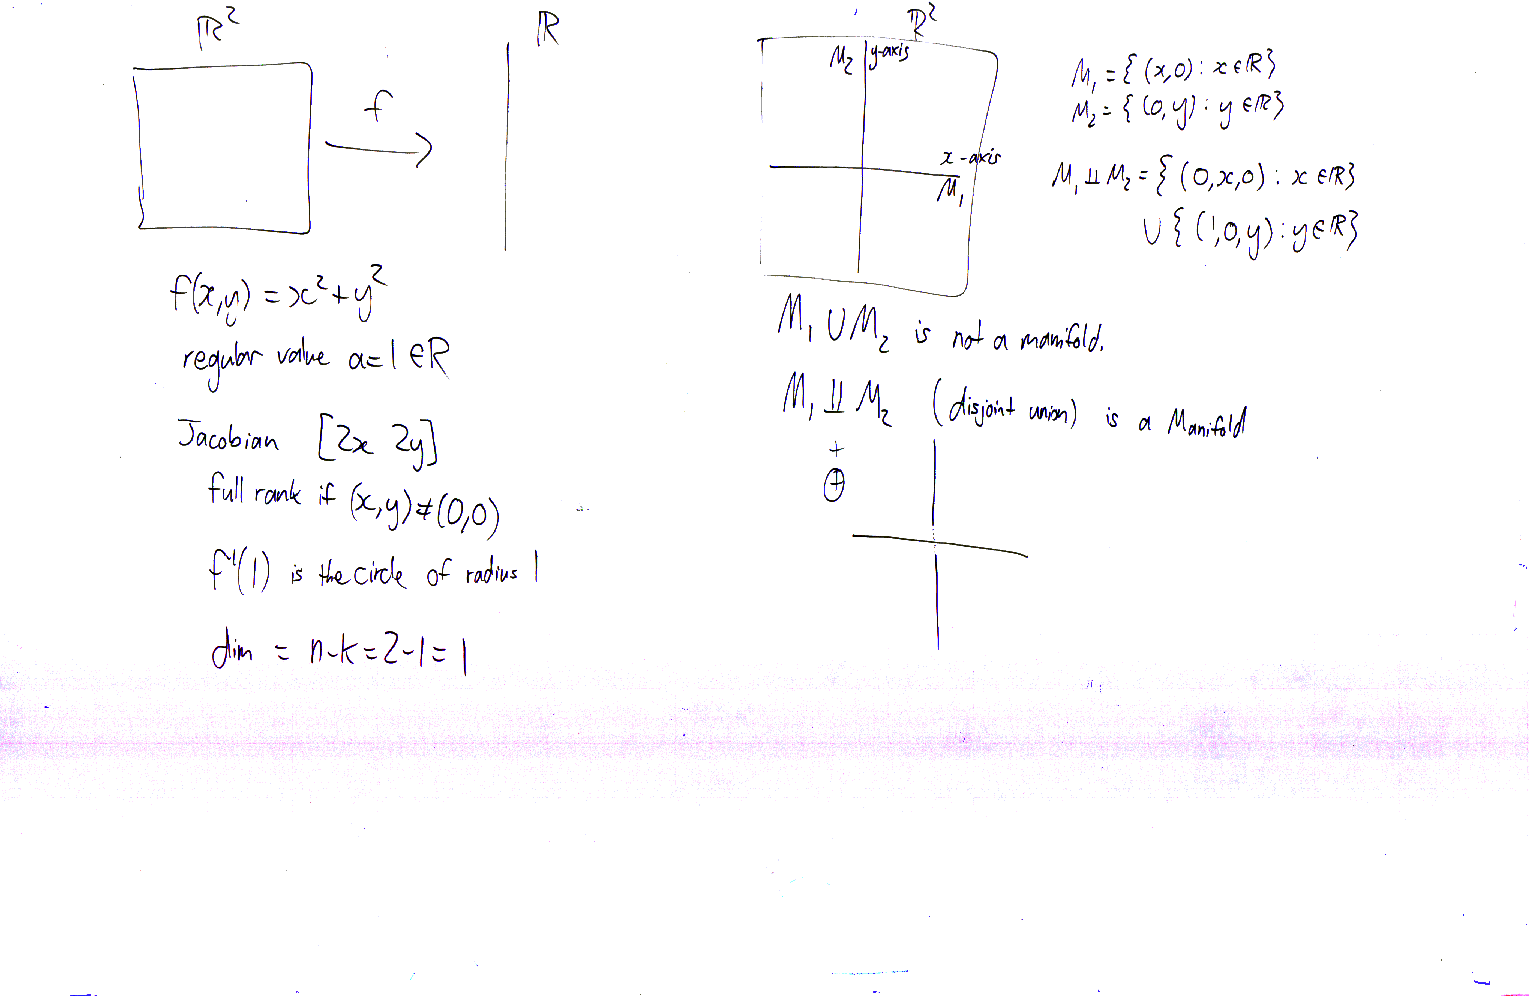 ℝ²
ℝ
f
f(x,y) = x²+y²
regular value a=1 ∈ℝ
Jacobian [2x 2y]
full rank if (x,y)≠(0,0)
f⁻¹(1) is the circle of radius 1
dim = n-k=2-1=1
ℝ²
M₂ y-axis
x-axis
M₁
M₁={(x,0): x∈ℝ}
M₂={(0,y): y∈ℝ}
M₁⊔M₂={(0,x,0): x∈ℝ}
∪{(1,0,y): y∈ℝ}
M₁∪M₂ is not a manifold.
M₁⨿M₂ (disjoint union) is a Manifold
+
⊕